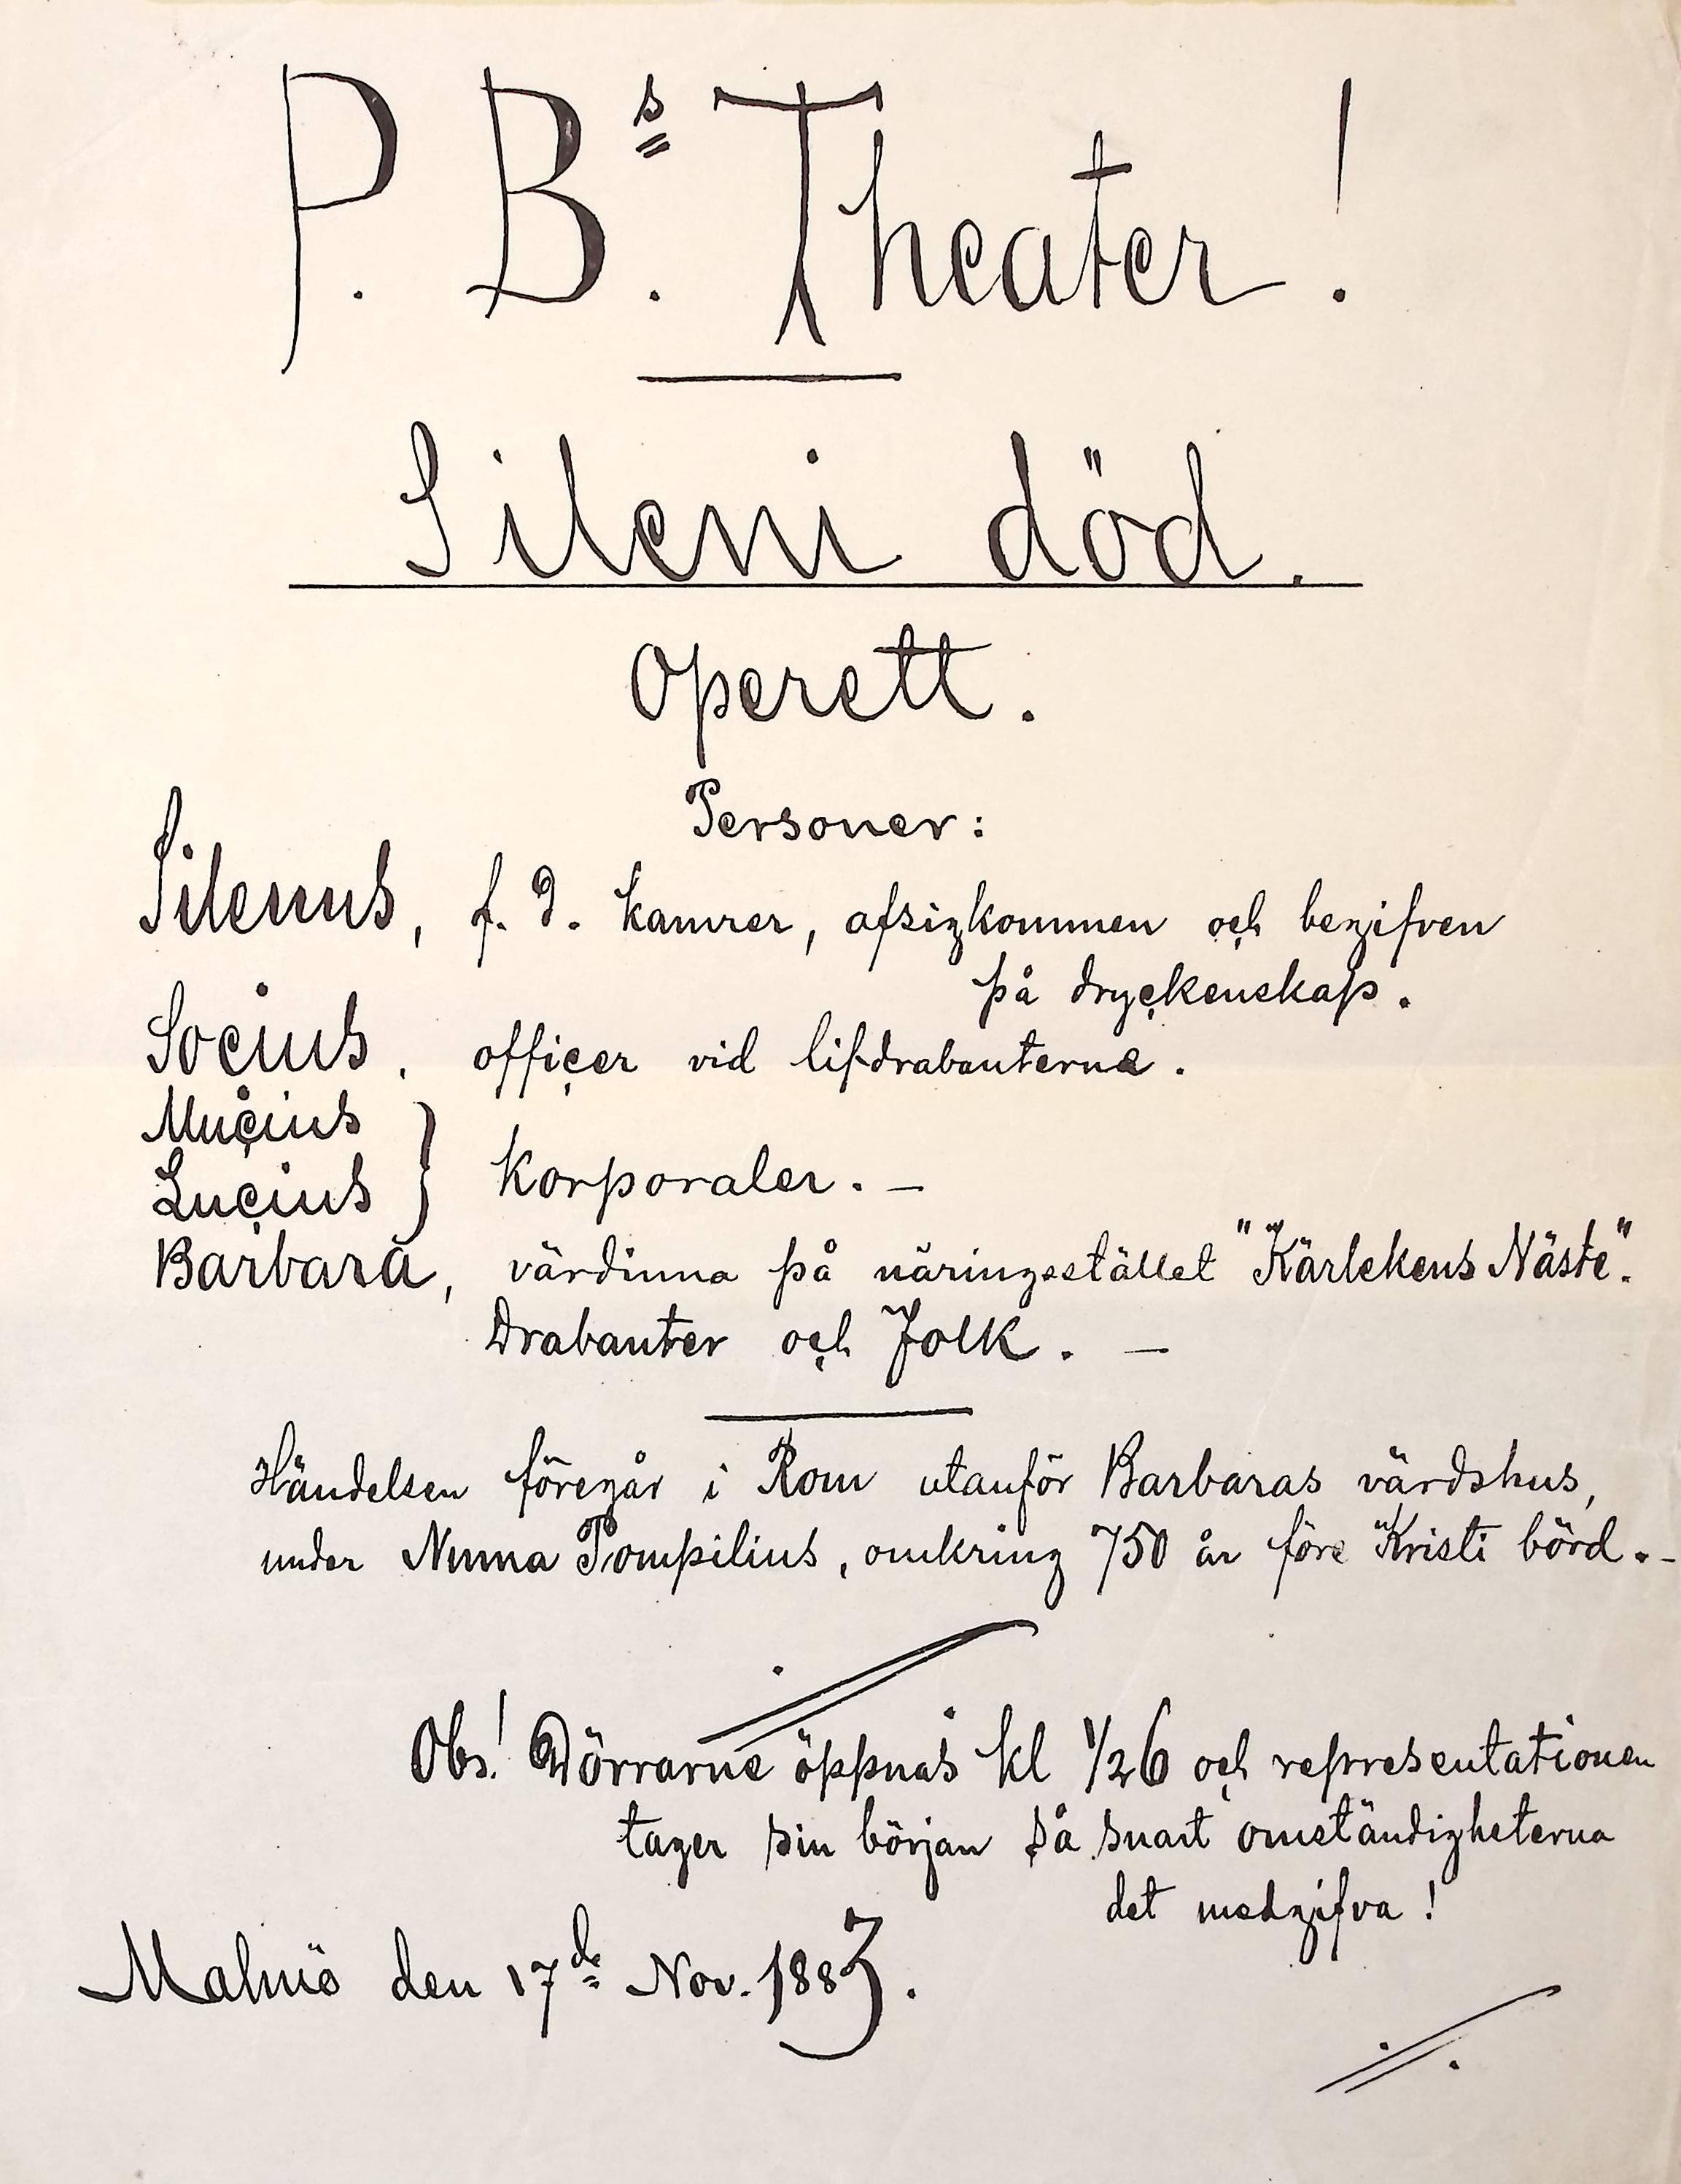 P. Bs. Theater!
Sileni död.
Operett.
Personer:
Silenus, f. d. kamrer, afsigkommen och begifven
på dryckenskap.
Socius, officer vid lifdrabanterna.
Mucius
Lucius } Korporaler. –
Barbara, värdinna på näringsstället "Kärlekens Näste".
Drabanter och Folk. –
Händelsen föregår i Rom utanför Barbaras värdshus,
under Numa Pompilius, omkring 750 år före Kristi börd. –
Obs! Dörrarne öppnas kl 1/2 6 och representationen
tager sin början så snart omständigheterna
det medgifva!
Malmö den 17de Nov. 1883.